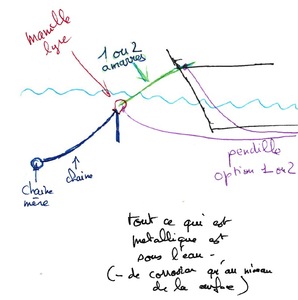 manille
lyre
1 ou 2
amarres
chaîne
mère
chaîne
pendille
option 1 ou 2
tout ce qui est
métallique est
sous l'eau -
(- de corrosion qu'au niveau
de la surface)